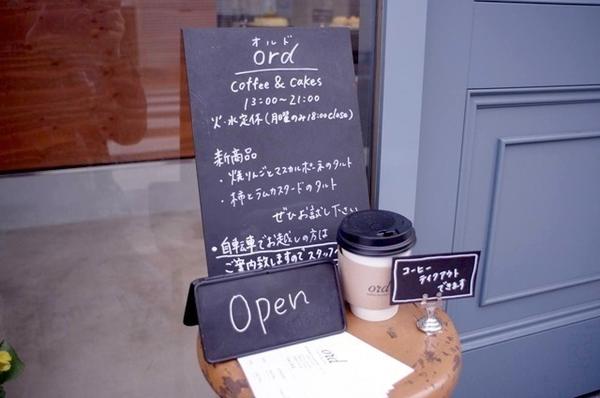 オルド
ord
coffee & cakes
13:00~21:00
火・水定休(月曜のみ18:00close)
新商品
・焼りんごとマスカルポーネのタルト
・柿とラムカスタードのタルト
ぜひお試し下さい
・自転車でお越しの方は
ご案内致しますのでスタッフ
Open
ord
コーヒー
テイクアウト
できます
ord